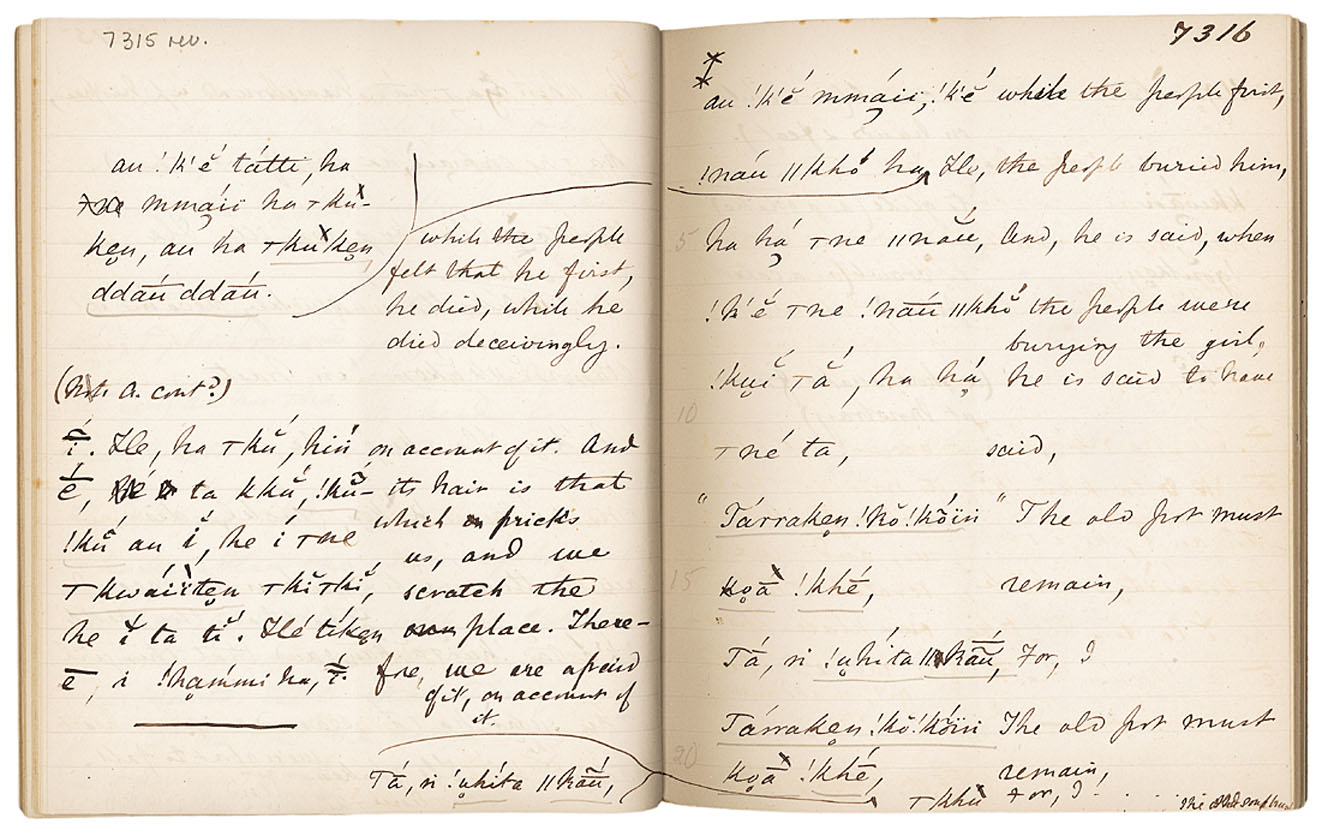 7315 rev.
au !k'ĕ́ tátti, ha
mmáii ha ⊤kŭ-
ken, au ha ⊤kŭken
ddáu ddáu.
while the people
felt that he first,
he died, while he
died deceivingly.
(Not a. cont?)
í. He, ha ⊤kŭ, hiṅ on account of it. And
é, ta kkŭ, !kŭ- its hair is that
which pricks
!kŭ au ĭ, he í ⊤ne us, and we
⊤kwáiïten ⊤kĭ⊤kĭ, scratch the
he ĭ ta tĭ. Hé tíken place. There-
ē, i !hámmi ha, í. fore, we are afraid
of it, on account of
it.
Tá, ṅ !uhíta ǁkāŭ,
7316
au !k'ĕ́ mmáii, !k'ĕ́ while the people first,
!náu ǁkhŏ ha, He, the people buried him,
ha há ⊤ne ǁnắu, And, he is said, when
!k'ĕ́ ⊤ne !náu ǁkhŏ the people were
burying the girl,
!kuĭ ⊤ắ, ha há he is said to have
5
10
⊤né ta, said,
"Tárraken !kŏ!kŏ́iṅ" The old pot must
15
koā !khé, remain,
Tá, ṅ !uhíta ǁkāŭ, For, I
Tárraken !kŏ!kŏ́iṅ The old pot must
20
koā !khé, remain,
⊤khŭ For, I